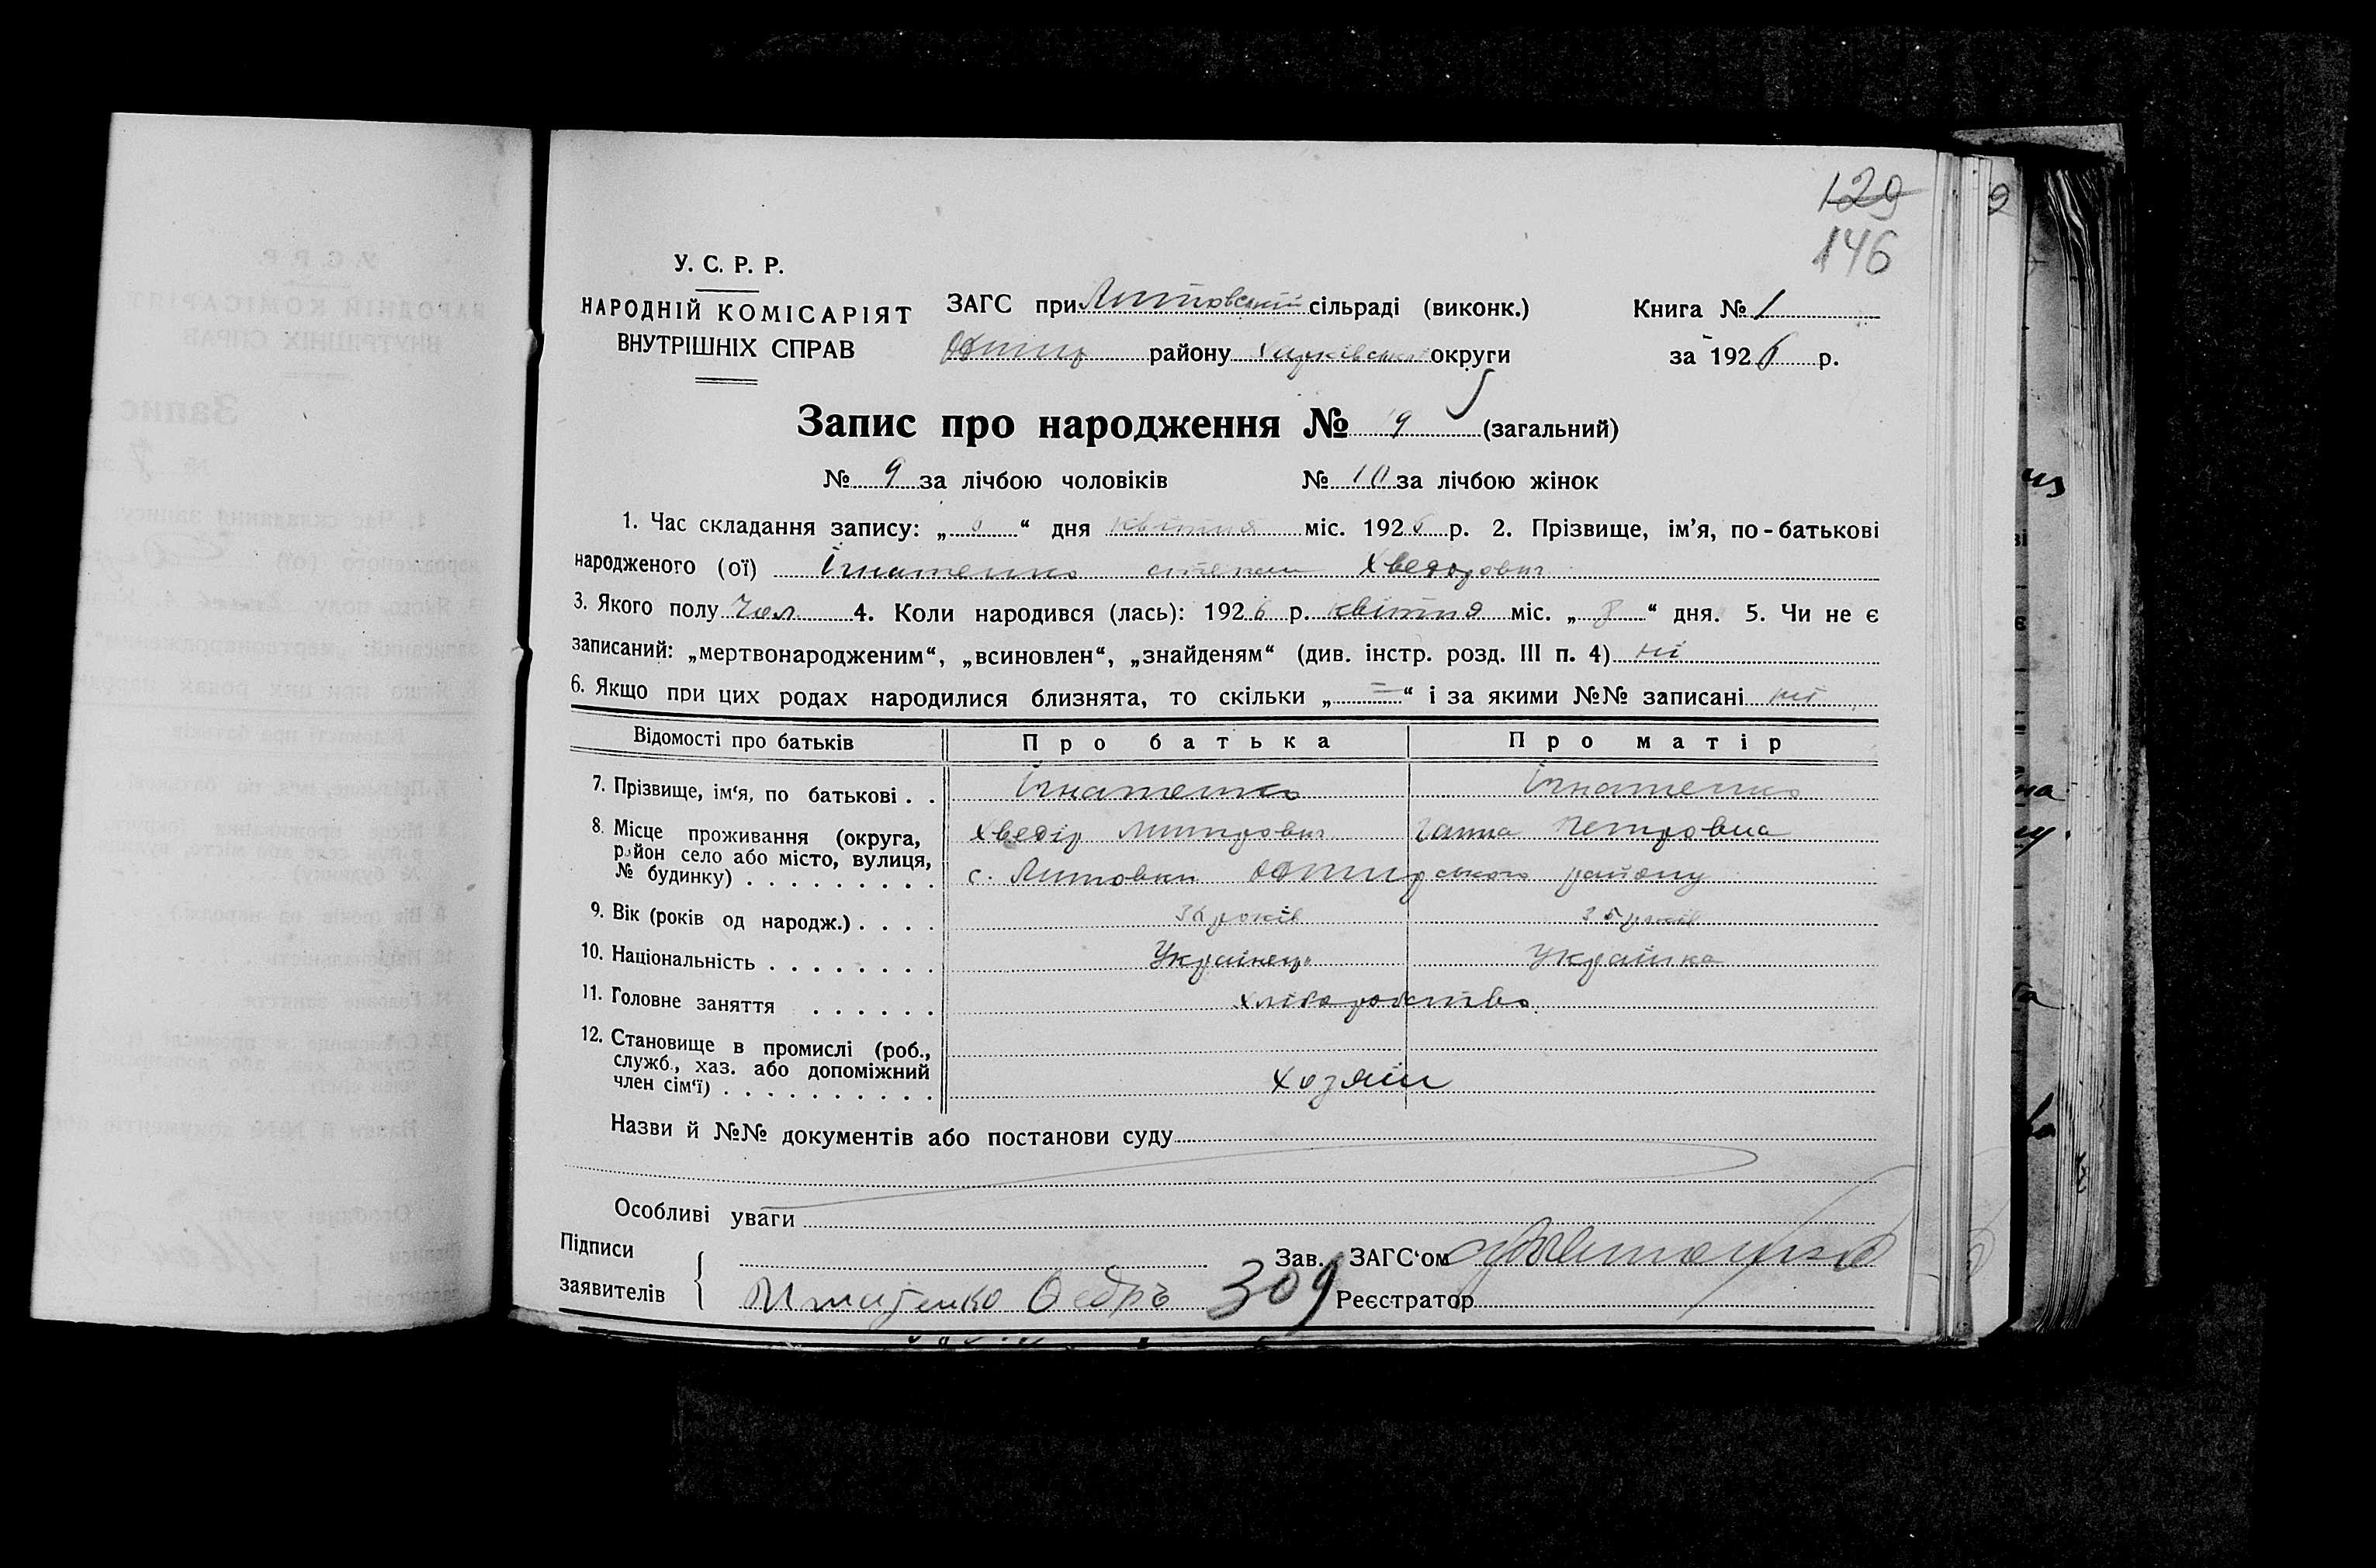 129
146
У. С. Р. Р.
НАРОДНІЙ КОМІСАРІЯТ
ВНУТРІШНІХ СПРАВ
ЗАГС при Литовській сільраді (виконк.)
району Харківської округи
Книга № 1
за 1926 р.
Запис про народження № 9 (загальний)
№ 9 за лічбою чоловіків № 10 за лічбою жінок
1. Час складання запису: „ “ дня квітня міс. 1926 р. 2. Прізвище, ім’я, по-батькові
народженого (ої) Ігнатенко степан Хведорович
3. Якого полу Чол. 4. Коли народився (лась): 1926 р. квітня міс. „ 8 “ дня. 5. Чи не є
записаний: „мертвонародженим“, „всиновлен“, „знайденям“ (див. інстр. розд. III п. 4) ні
6. Якщо при цих родах народилися близнята, то скільки „ = “ і за якими №№ записані ні
Відомості про батьків Про батька Про матір
7. Прізвище, ім‘я, по батькові . . Ігнатенко Ігнатенко
8. Місце проживання (округа, Хведір Митрович Ганна Петровна
район село або місто, вулиця,
№ будинку) . . . . . . . . . с. Литовки Охтирського району
9. Вік (років од народж.) . . . . років 35 років
10. Національність . . . . . . . . Українець Українка
11. Головне заняття . . . . . . хліборобство
12. Становище в промислі (роб.,
служб., хаз. або допоміжний
член сім‘ї) . . . . . . . . . . хозяїн
Назви й №№ документів або постанови суду
Особливі уваги
Підписи
заявителів
Зав. ЗАГС‘ом
Игнатенко Федръ 309 Реєстратор